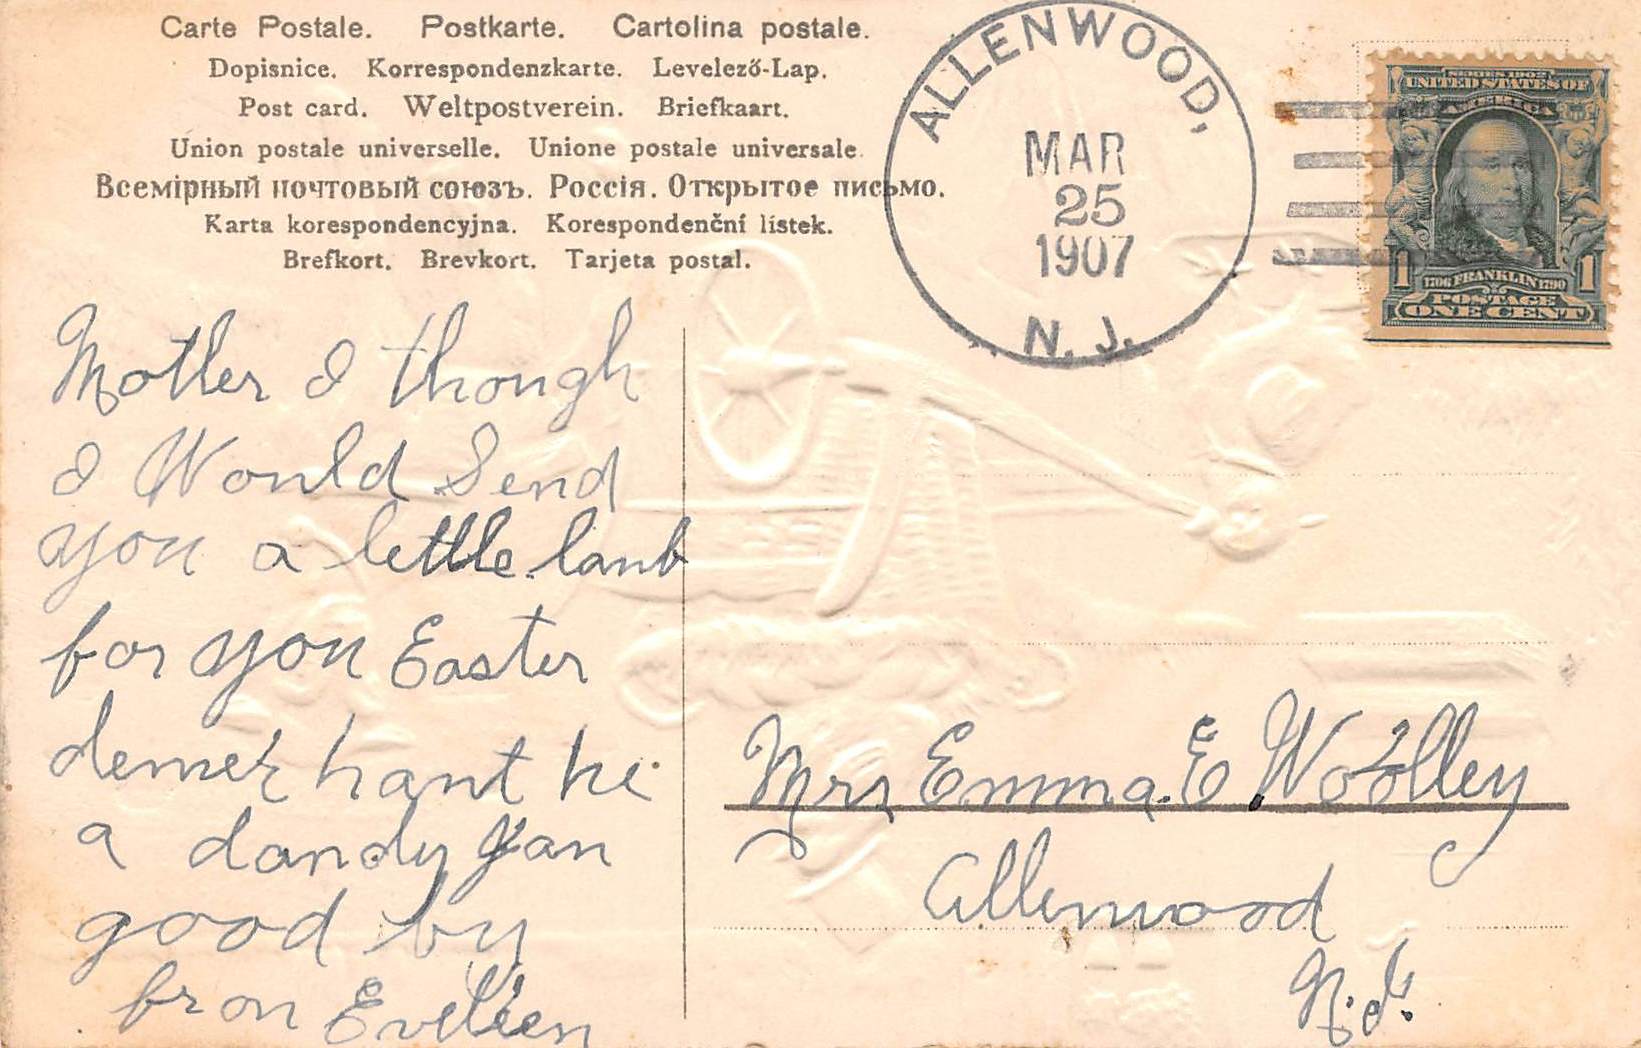 Carte Postale. Postkarte. Cartolina postale.
Dopisnice. Korrespondenzkarte. Levelező-Lap.
Post card. Weltpostverein. Briefkaart.
Union postale universelle. Unione postale universale.
Всемірный почтовый союзъ. Россія. Открытое письмо.
Karta korespondencyjna. Korespondenční lístek.
Brefkort. Brevkort. Tarjeta postal.
ALLENWOOD,
MAR
25
1907
N. J.
SERIES 1902
UNITED STATES OF
AMERICA
1 1706 FRANKLIN 1790 1
POSTAGE
ONE CENT
Mother I though
I Would Send
you a little lamb
for you Easter
hant he
a dandy
good by
from
Mrs Emma. E. Woolley
Allenwood
N. J.